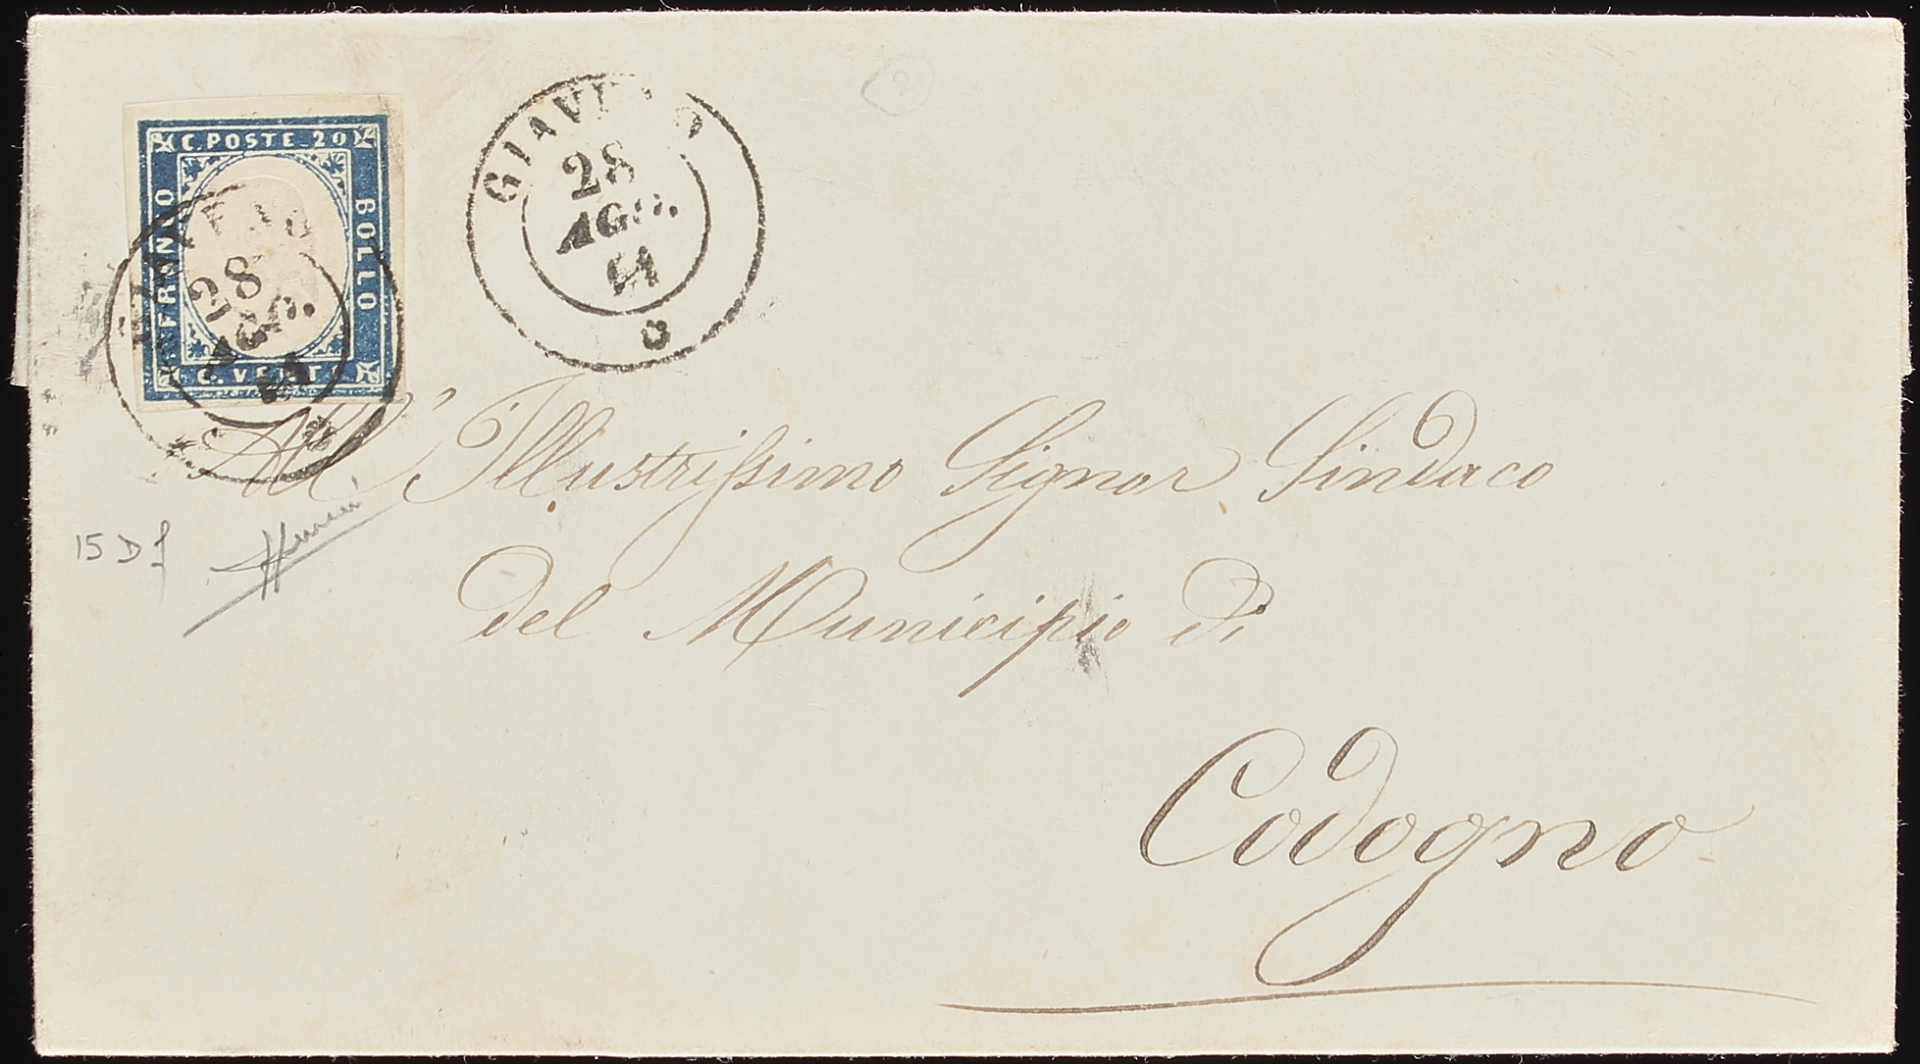 C. POSTE 20
FRANCO
BOLLO
C. VENTI
28
AGO.
61
GIAVENO
28
AGO.
61
All' Illustrissimo Signor Sindaco
del Municipio di
Codogno
15 D f
2